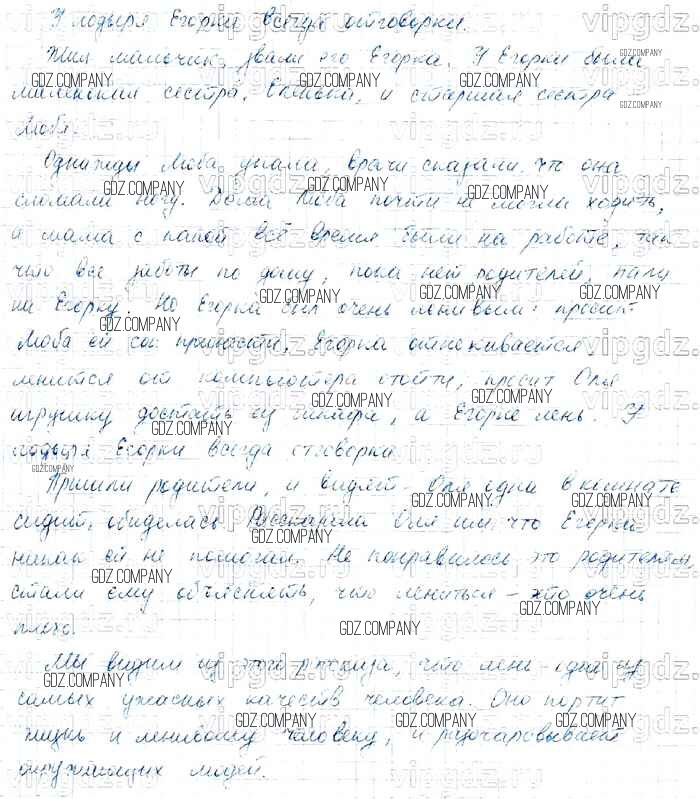 У лодыря Егорки всегда отговорки.
Жил мальчик, звали его Егорка. У Егорки были
маленькая сестра, Оленька, и старшая сестра
Люба.
Однажды Люба упала, врачи сказали, что она
сломала ногу. Долго Люба почти не могла ходить,
а мама с папой всё время были на работе, так
что все заботы по дому, пока нет родителей, пали
на Егорку. Но Егорка был очень ленивым: просит
Люба ей сок принести, Егорка отнекивается,
ленится от компьютера отойти, просит Оля
игрушку достать ей с шкафа, а Егорке лень. У
лодыря Егорки всегда отговорка.
Пришли родители, и видят - Оля одна в комнате
сидит, обиделась. Рассказала Оля им, что Егорка
никак ей не помогал. Не понравилось это родителям,
стали ему объяснять, что лениться - это очень
плохо.
Мы видим из этого рассказа, что лень - одна из
самых ужасных качеств человека. Оно портит
жизнь и ленивому человеку, и разочаровывает
окружающих людей.